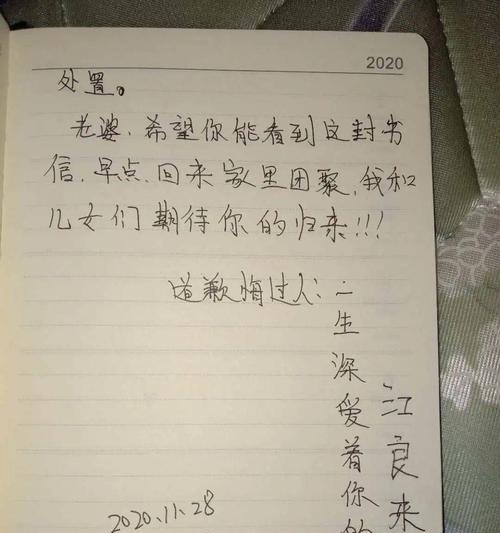 2020
处置。
老婆，希望你能看到这封书
信，早点回来家里团聚，我和
儿女们期待你的归来!!!
道歉悔过人：
一生深爱着你的
江良来
2020.11.28